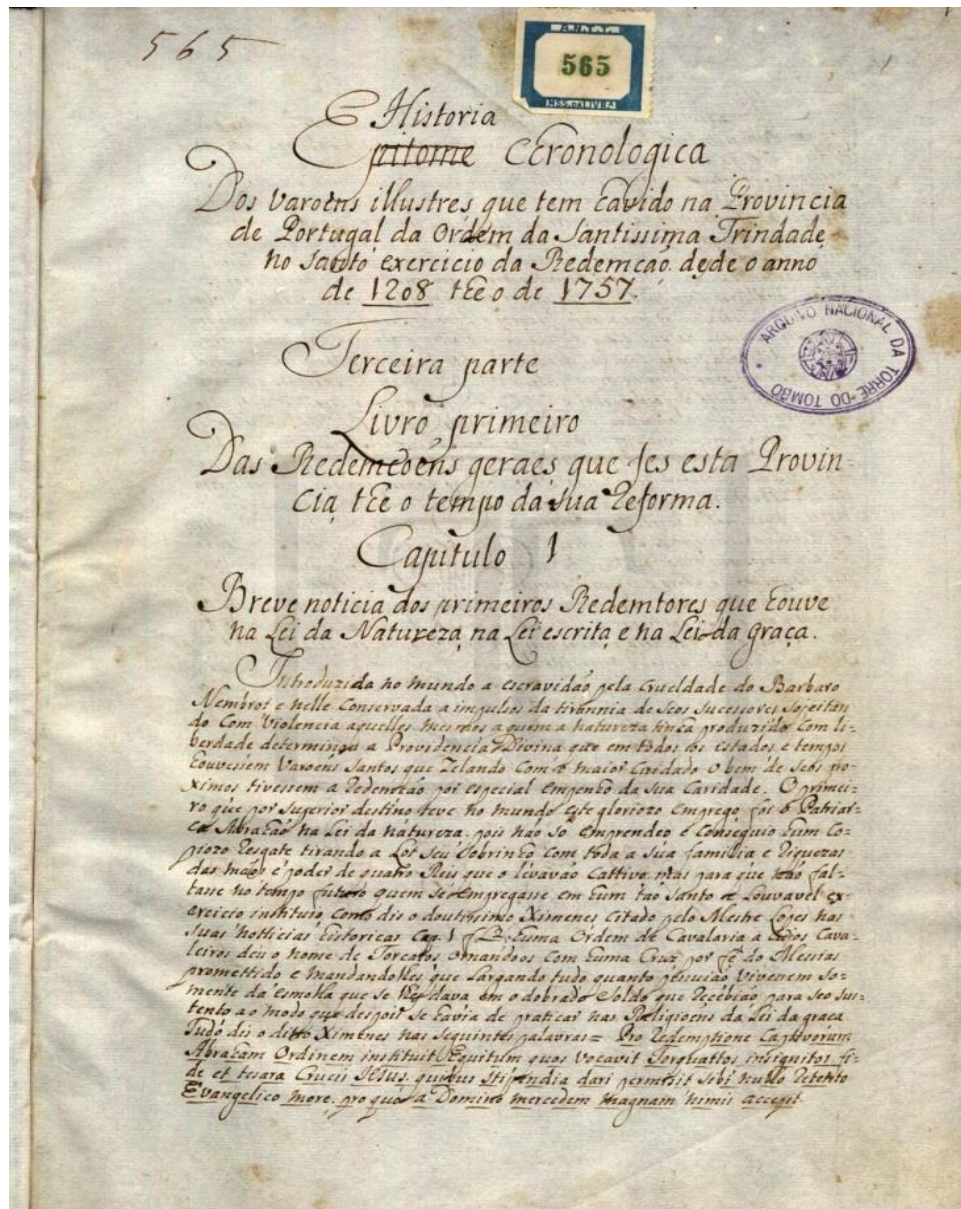 565
A.N.T.T.
565
MSS. DA LIVRA
Historia
Epitome Chronologica
Dos Varoens illustres que tem havido na Provincia
de Portugal da Ordem da Santissima Trindade
no santo exercicio da Redemcaõ dede o anno
de 1208 the o de 1757.
ARQUIVO NACIONAL DA TORRE DO TOMBO
Terceira parte
Livro primeiro
Das Redemcoẽns geraes que fes esta Provin-
cia, the o tempo da sua Reforma.
Capitulo 1
Breve noticia dos primeiros Redemtores que houve
na Lei da Natureza, na Lei escrita e na Lei da graça.
Introduzida no mundo a escravidaõ pela crueldade do Barbaro
Nembrot e nelle conservada a impulsos da tirannia de seos sucessores sojeitan
do com violencia aquelles mesmos a quem a natureza tinha produzido com li-
berdade determinou a Providencia Divina que em todos os estados e tempos
houvessem Varoens santos que zelando com o maior cuidado o bem de seos pro-
ximos tivessem a Redemcaõ por especial empenho da sua Caridade. O primei-
ro que por superior destino teve no mundo este gloriozo emprego foi o Patriar-
ca Abrahaõ na Lei da natureza, pois naõ só emprendeo e conseguio hum co-
piozo resgate tirando a Lot seu sobrinho com toda a sua familia e riquezas
das maõs e poder de quatro Reis que o levavaõ cattivo, mas para que naõ fal-
tasse no tempo futuro quem se empregasse em hum taõ santo e louvavel ex-
ercicio instituio, como dis o doutissimo Ximenes citado pelo Mestre Lopes nas
suas notticias historicas Cap. 1 huma Ordem de Cavalaria a cujos Cava-
leiros deu o nome de Torcatos ornandoos com huma Cruz por fé do Messias
promettido e mandandolhes que largando tudo quanto possuiaõ vivessem so-
mente da esmolla que se lhes dava em o dobrado soldo que recebiaõ para seo sus-
tento ao modo que despois se havia de praticar nas Religioens da Lei da graca
Tudo dis o ditto Ximenes nas seguintes palavras = Pro Redemptione Captivorum
Abraham Ordinem instituit Equitum quos vocavit Torquattos insignitos fi-
de et tesara Crucis Jesus, quibus stipendia dari permisit sibi nullo retento
Evangelico more, pro quo a Domino mercedem magnam nimis accepit.